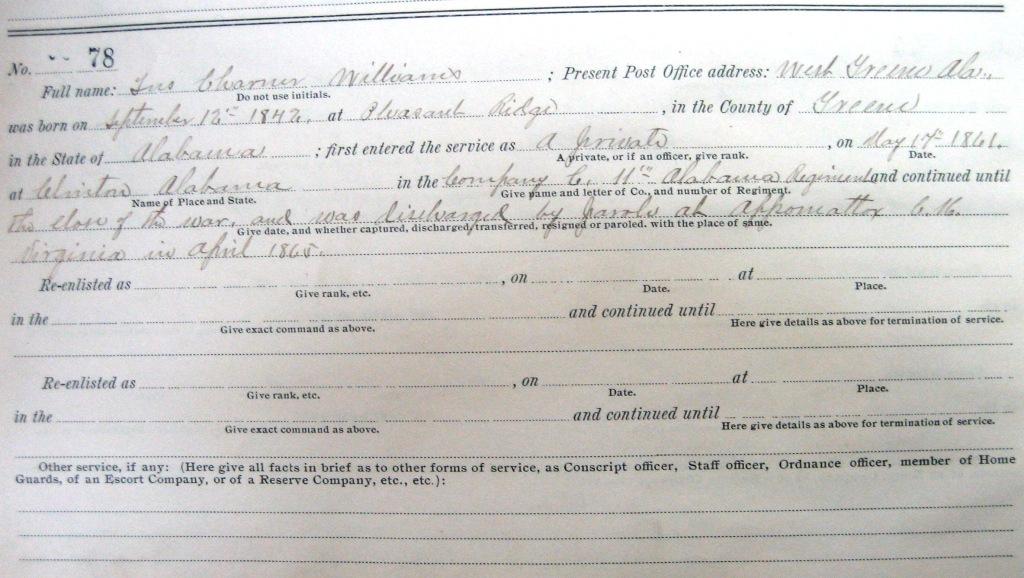 No. -- 78
Full name: Jno Charner Williams ; Present Post Office address: West Greene Ala.,
Do not use initials.
was born on September 12th 1842, at Pleasant Ridge , in the County of Greene
in the State of Alabama ; first entered the service as A Private , on May 17th 1861.
A private, or if an officer, give rank. Date.
at Clinton Alabama in the Company C. 11th Alabama Regiment and continued until
Name of Place and State. Give name and letter of Co., and number of Regiment.
the close of the war, and was discharged by Parole at Appomattox C.H.
Give date, and whether captured, discharged, transferred, resigned or paroled, with the place of same.
Virginia in April 1865.
Re-enlisted as , on at
Give rank, etc. Date. Place.
in the and continued until
Give exact command as above. Here give details as above for termination of service.
Re-enlisted as , on at
Give rank, etc. Date. Place.
in the and continued until
Give exact command as above. Here give details as above for termination of service.
Other service, if any: (Here give all facts in brief as to other forms of service, as Conscript officer, Staff officer, Ordnance officer, member of Home
Guards, of an Escort Company, or of a Reserve Company, etc., etc.):